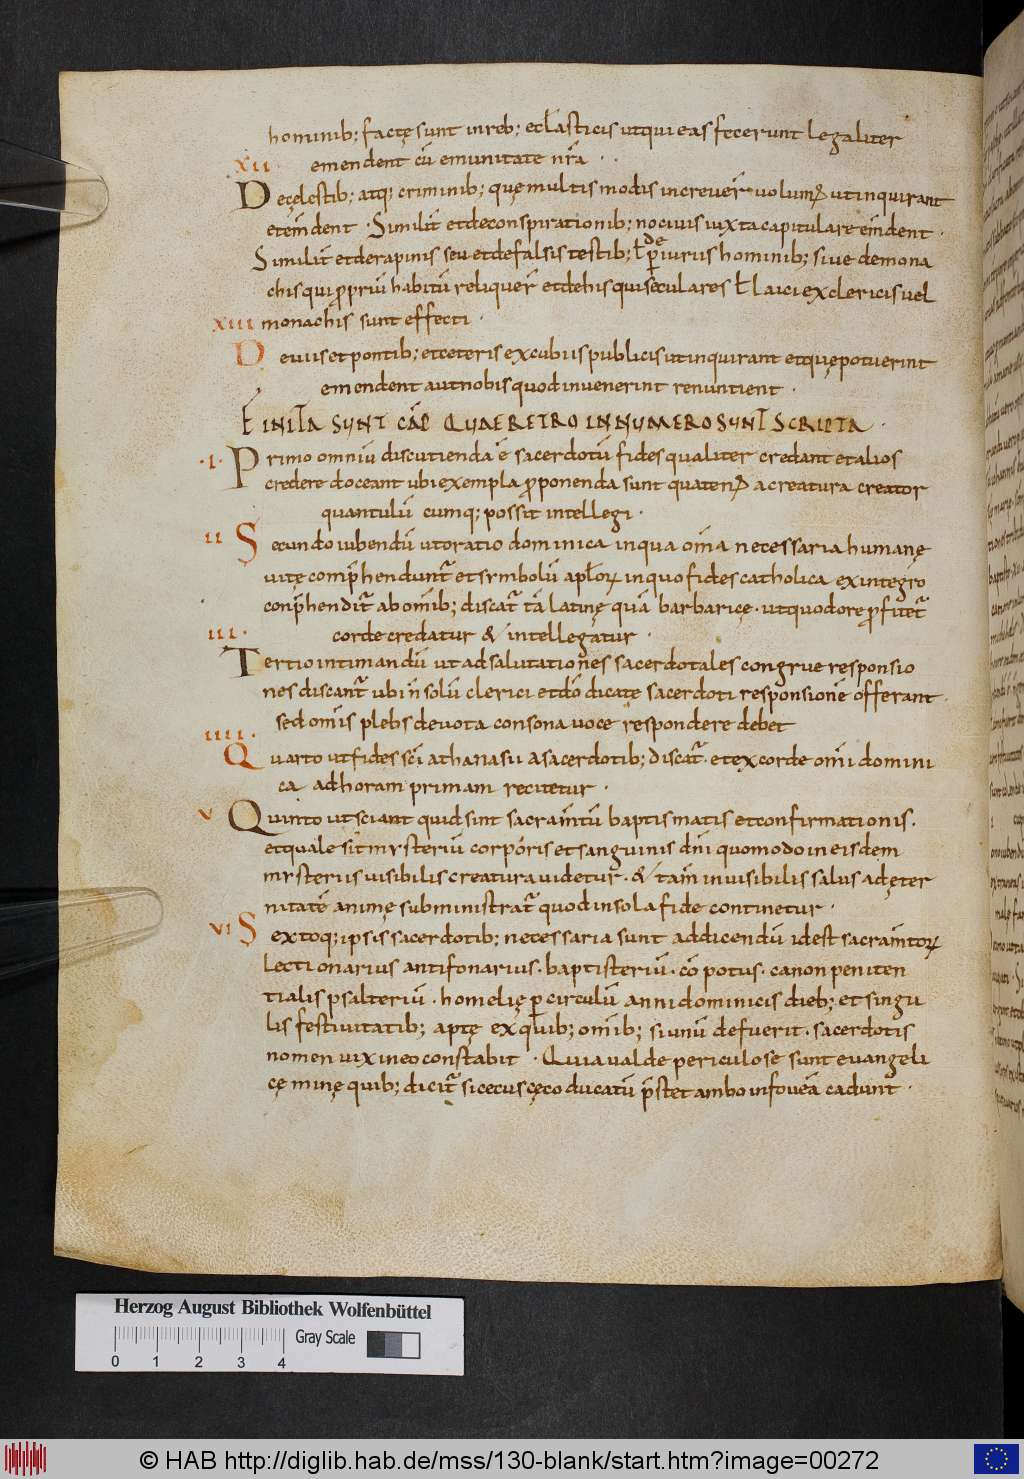 hominib; factę sunt inreb; ecl̄asticis utqui eas fecerunt legaliter
XII. emendent cū emunitate nr̄a . .
Decęlestib; atq; criminib; quę multis modis increuer̄ uolum᷒ ut inquirant
et em̄dent . Similit̄ et de conspirationib; nociuis iuxta capitulare em̄dent .
Similit̄ et de rapinis seu et de falsis testib; ł de ꝑiuriis hominib; siue demona
chis qui ꝓpriū habitū reliquer̄ et de his qui seculares ł laici ex clericis uel
XIII monachis sunt effecti .
De uiis et pontib; et ceteris excubiis publicis ut inquirant et quę potuerint
emendent aut nobis quod inuenerint renuntient .
FINITA SUNT CAP̄ QUAE RETRO IN NUMERO SUNT SCRIPTA .
.I. Primo omniū discutienda ē sacerdotū fides qualiter credant et alios
credere doceant ubi exempla ꝓponenda sunt quaten᷒ a creatura creator
quantulū cumq; possit intellegi .
II Secundo iubendū ut oratio dominica in qua om̄a necessaria humanę
uitę comp̄hendunt᷒ et symbolū apl̄oꝝ in quo fides catholica ex integro
conp̄hendit᷒ ab om̄ib; discat᷒ tā latinę quā barbaricę . ut quod ore ꝓfitet᷒
III. corde credatur & intellegatur .
Tertio intimandū ut ad salutationes sacerdotales congrue responsio
nes discant᷒ ubi n̄ solū clerici et dō dicate sacerdoti responsionē offerant .
sed om̄is plebs deuota consona uoce respondere debet
IIII.
Quarto ut fides sc̄i athanasii a sacerdotib; discat᷒ . et ex corde om̄i domini
ca ad horam primam recitetur .
V Quinto ut sciant quid sint sacram̄tū baptismatis et confirmationis .
et quale sit mysteriū corporis et sanguinis dn̄i quomodo in eisdem
mysteriis uisibilis creatura uidetur . & tam̄ inuisibilis salus ad ęter
nitatē animę subministrat᷒ quod in sola fide continetur .
VI Sexto q; ipsis sacerdotib; necessaria sunt addicendū idest sacram̄toꝝ
lectionarius antifonarius . baptisteriū . cōpotus . canon peniten
tialis psalteriū . homelię ꝑ circulū anni dominicis dieb; et singu
lis festiuitatib; aptę ex quib; omib; si unū defuerit . sacerdotis
nomen uix in eo constabit . Quia ualde periculose sunt euangeli
cę minę quib; dicit᷒ si cecus cęco ducatū p̄stet ambo in foueā cadunt .
Herzog August Bibliothek Wolfenbüttel
Gray Scale
0 1 2 3 4
© HAB http://diglib.hab.de/mss/130-blank/start.htm?image=00272